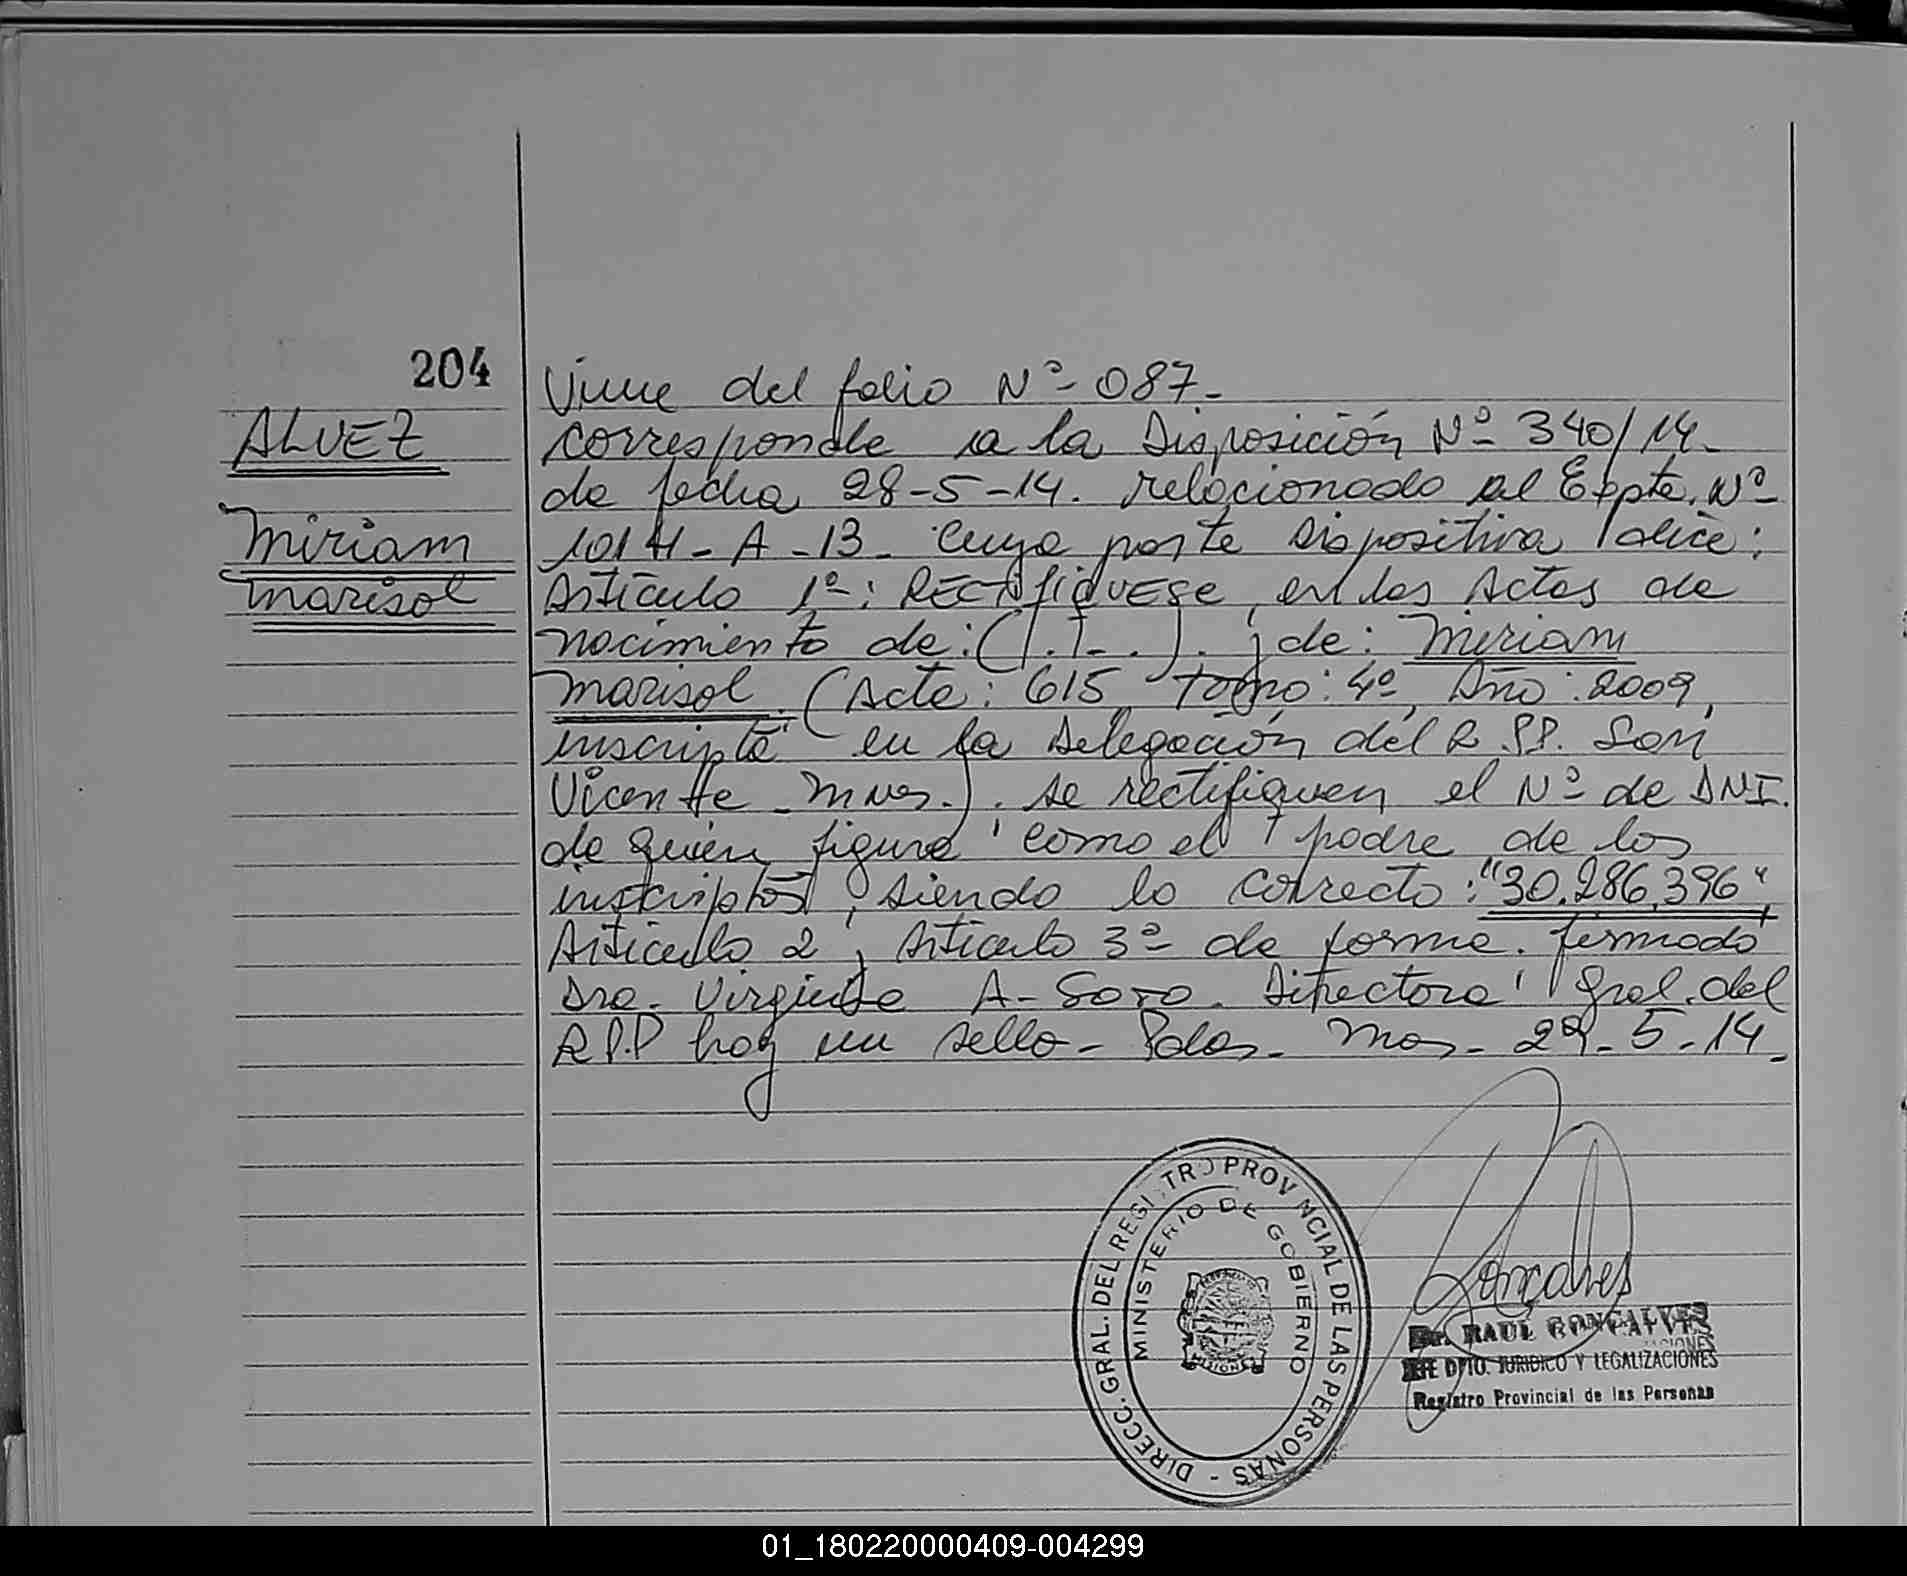 204
ALVEZ
Miriam
Marisol
Viene del folio Nº 087-
corresponde a la Disposición Nº 340/14-
de fecha 28-5-14. relacionado al Expte. Nº
1014-A-13- cuya parte dispositiva dice:
Artículo 1º: RECTIFIQUESE, en las Actas de
nacimiento de: (...-.). ; de: Miriam
Marisol. (Acta: 615, Tomo: 4º, Año: 2009,
inscripta en la Delegación del R.PP. San
Vicente - Mnes.). se rectifiquen el Nº de DNI.
de quien figura como el padre de los
inscriptos, siendo lo correcto: "30.286.396"
Artículo 2, Artículo 3º de forma. firmado
Dra. Virginia A- Soro. Directora Gral. del
R.P.P hay un sello- Pdas- Mns- 29-5-14-
DIRECC. GRAL. DEL REGISTRO PROVINCIAL DE LAS PERSONAS -
MINISTERIO DE GOBIERNO
MISIONES
Goncalves
Dr. RAUL GONCALVES
JEFE DPTO. JURIDICO Y LEGALIZACIONES
Registro Provincial de las Personas
01_180220000409-004299